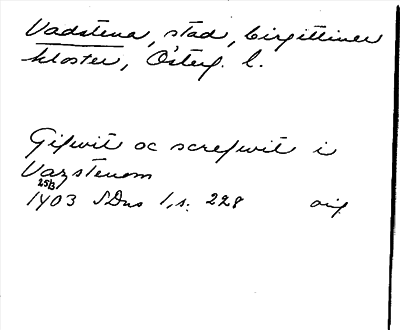 Vadstena, stad, birgittiner
kloster, Österg. l.
Gifwit oc screfwit i
Vazstenom
25/3
1403 SDns 1, s. 228 orig